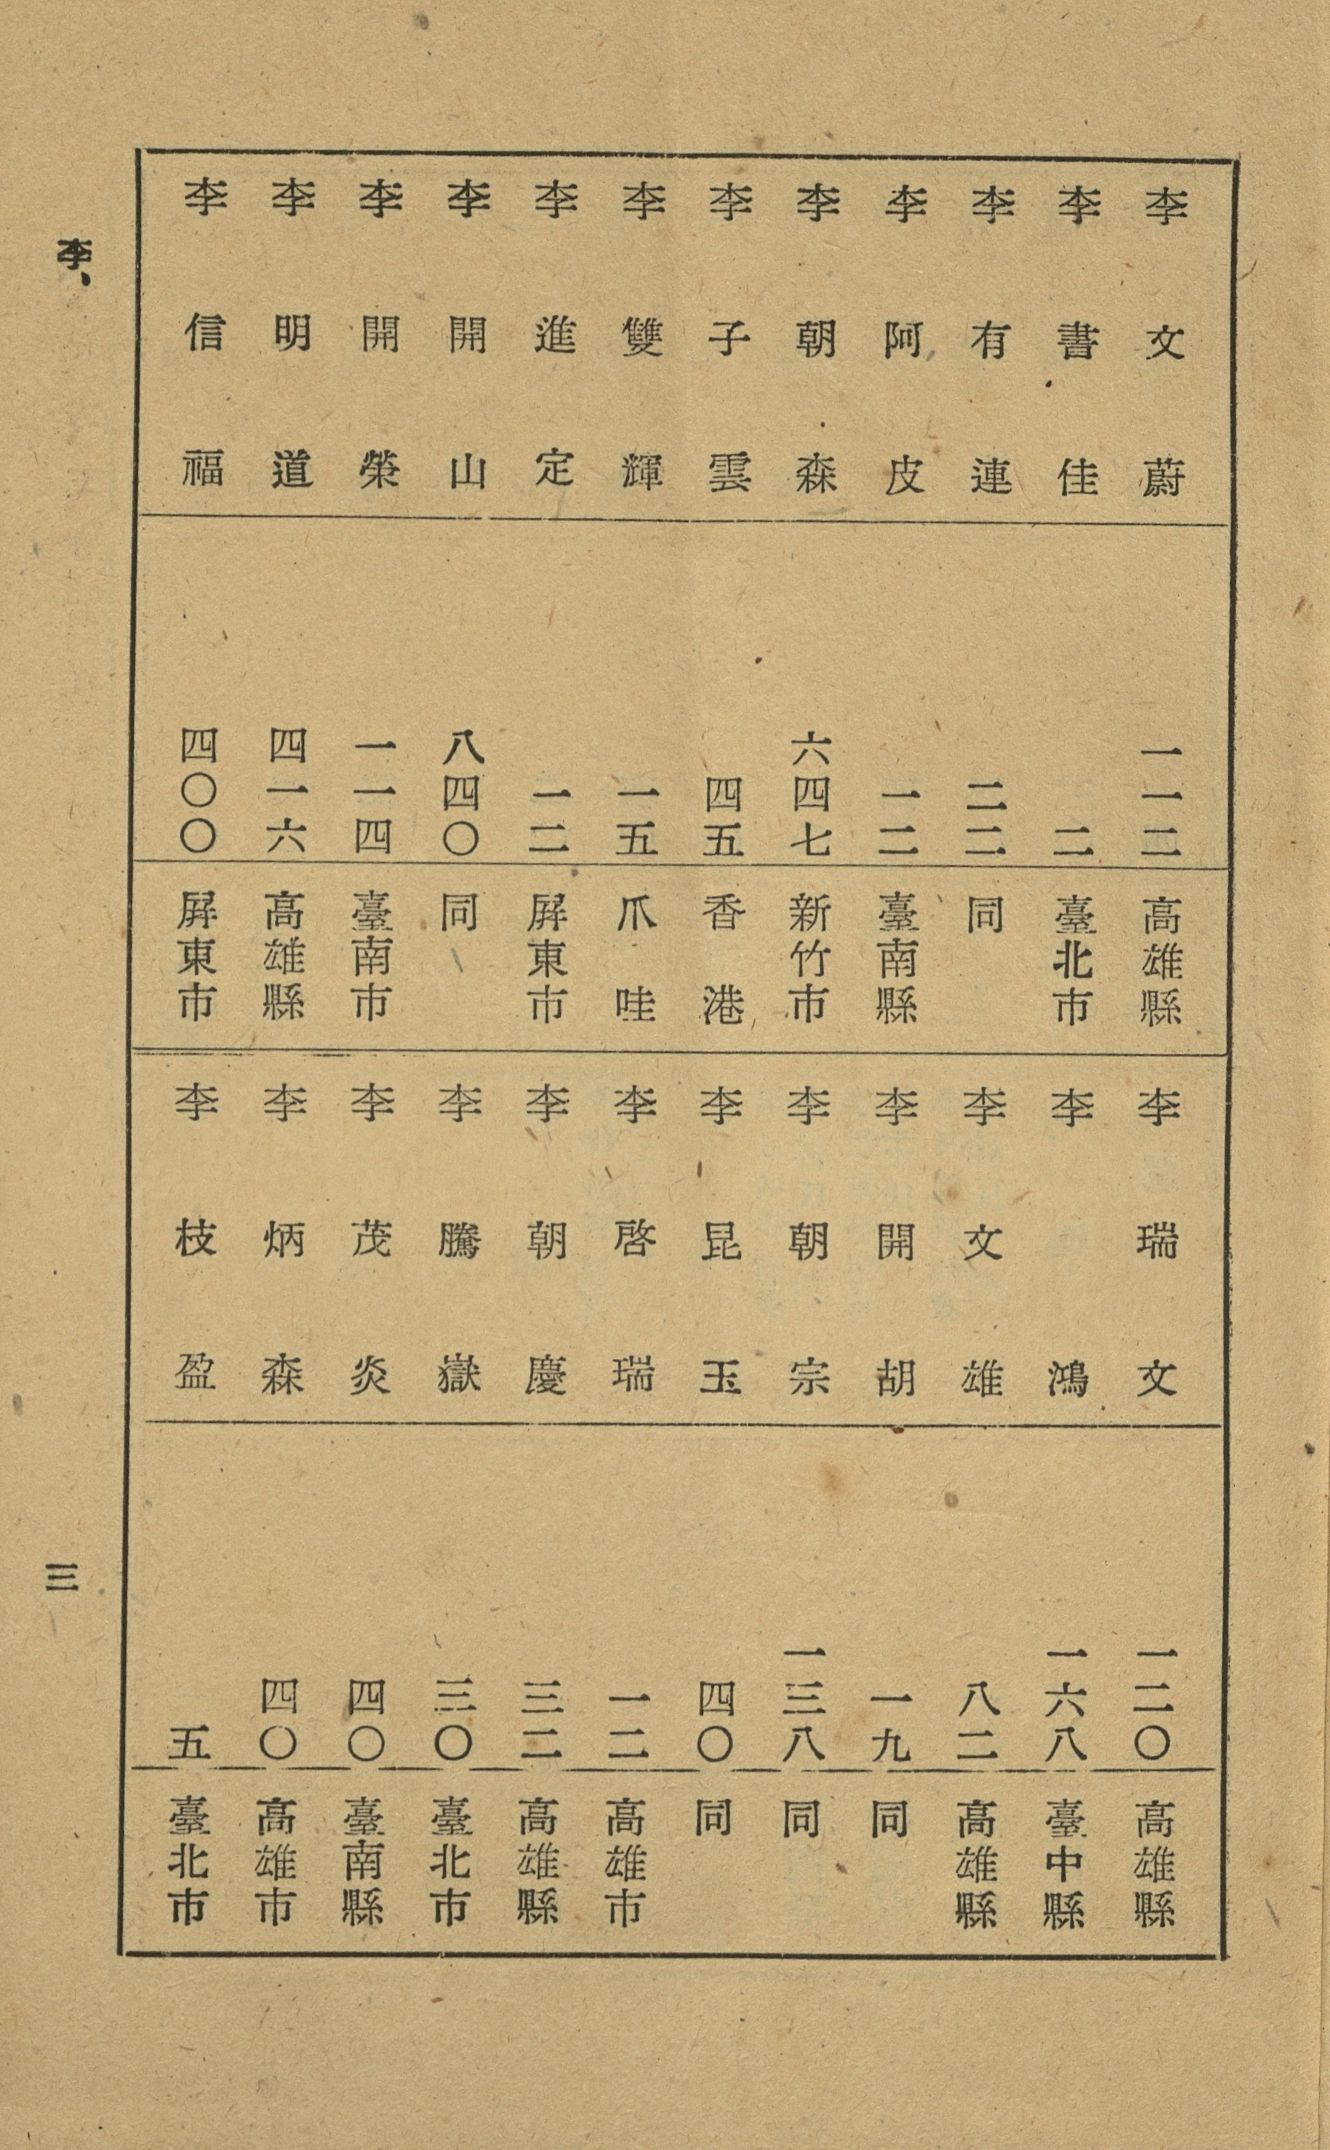 李文蔚 一一二 高雄縣
李書佳 二 臺北市
李有連 二二 同
李阿皮 一二 臺南縣
李朝森 六四七 新竹市
李子雲 四五 香港
李雙輝 一五 爪哇
李進定 一二 屏東市
李開山 八四〇 同
李開榮 一一四 臺南市
李明道 四一六 高雄縣
李信福 四〇〇 屏東市
李瑞文 一二〇 高雄縣
李鴻 一六八 臺中縣
李文雄 八二 高雄縣
李開胡 一九 同
李朝宗 一三八 同
李昆玉 四〇 同
李啓瑞 一二 高雄市
李朝慶 三二 高雄縣
李騰嶽 三〇 臺北市
李茂炎 四〇 臺南縣
李炳森 四〇 高雄市
李枝盈 五 臺北市
李、
三